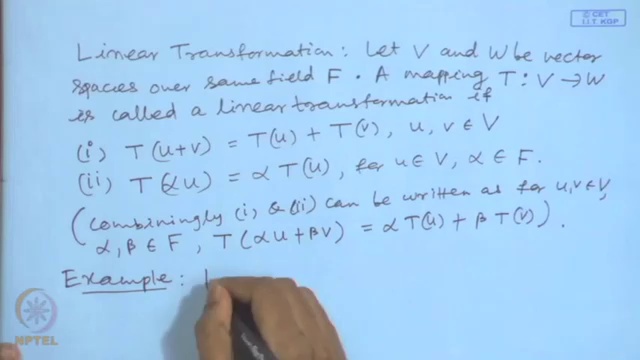 © CET
I.I.T. KGP
Linear Transformation: Let V and W be vector
spaces over same field F. A mapping T: V → W
is called a linear transformation if
(i) T(u+v) = T(u) + T(v), u, v ∈ V
(ii) T(αu) = α T(u), for u ∈ V, α ∈ F.
(Combiningly (i) & (ii) can be written as for u, v ∈ V,
α, β ∈ F, T(αu + βv) = α T(u) + β T(v)).
Example:
NPTEL